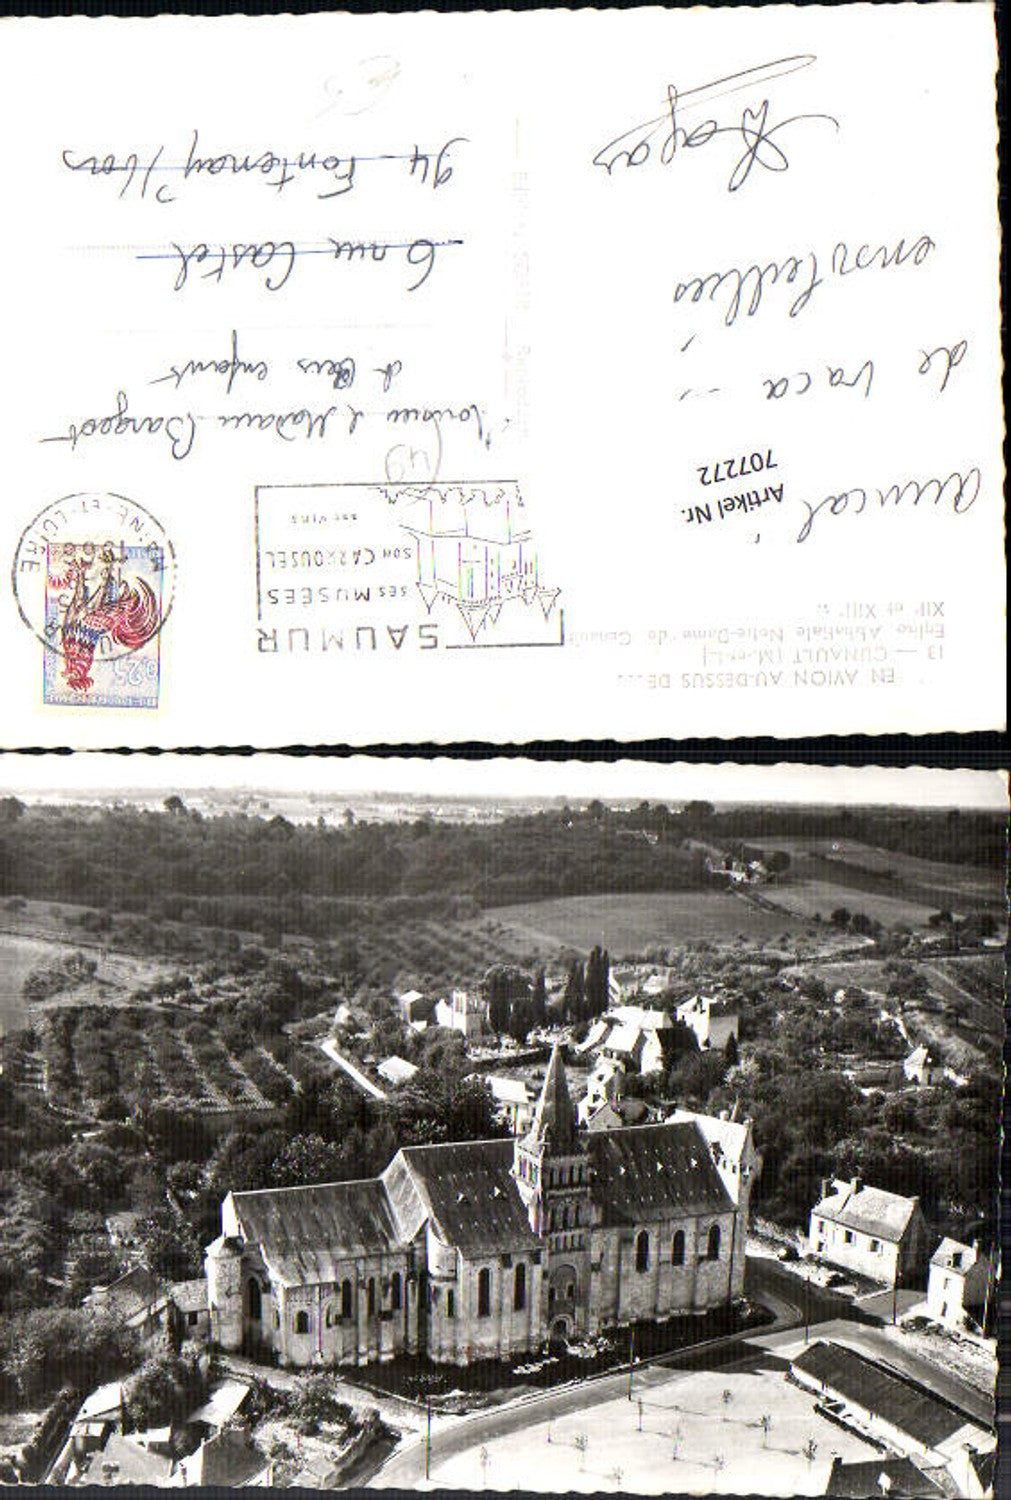 EN AVION AU-DESSUS DE...
13 — CUNAULT (M.-et-L.)
Eglise Abbatiale Notre-Dame de Cunault
XIIe et XIIIe s.
amical
de vaca...
ensoleillées
Artikel Nr.
707272
SAUMUR
SES MUSÉES
SON CARROUSEL
SES VINS
0,25
SAUMUR
MAINE-ET-LOIRE
49
Monsieur & Madame Bargeot
et leurs enfants
6 rue Castel
94 Fontenay s/ Bois